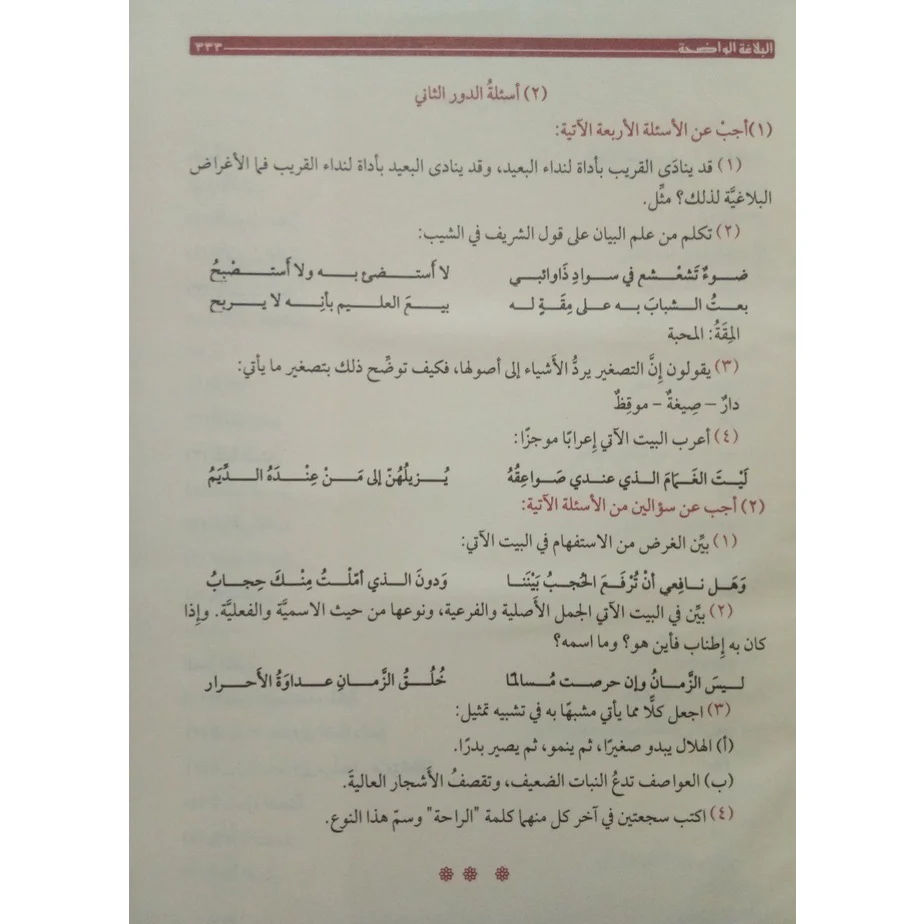 البلاغة الواضحة ٣٣٣
(٢) أسئلةُ الدور الثاني
(١) أجبْ عن الأسئلة الأربعة الآتية:
(١) قد ينادَى القريب بأداة لنداء البعيد، وقد ينادى البعيد بأداة لنداء القريب فما الأغراض
البلاغيَّة لذلك؟ مثِّل.
(٢) تكلم من علم البيان على قول الشريف في الشيب:
ضوءٌ تَشعْشع في سوادِ ذَاوائبي لا أَستضئ به ولا أَستصْبحُ
بعتُ الشبابَ به على مِقَةٍ له بيعَ العليم بأنه لا يربح
المِقَةُ: المحبة
(٣) يقولون إنَّ التصغير يردُّ الأشياء إلى أصولها، فكيف توضِّح ذلك بتصغير ما يأتي:
دارٌ – صِيغةٌ – موقِظٌ
(٤) أعرب البيت الآتي إعرابًا موجزًا:
لَيْتَ الغَمَامَ الذي عندي صَواعِقُهُ يُزيلُهُنّ إلى مَنْ عِنْدَهُ الدِّيَمُ
(٢) أجب عن سؤالين من الأسئلة الآتية:
(١) بيِّن الغرض من الاستفهام في البيت الآتي:
وَهَل نافِعي أنْ تُرْفَعَ الحُجبُ بَيْنَنا وَدونَ الذي أمّلْتُ مِنْكَ حِجابُ
(٢) بيِّن في البيت الآتي الجمل الأَصلية والفرعية، ونوعها من حيث الاسميَّة والفعليَّة. وإذا
كان به إطناب فأين هو؟ وما اسمه؟
ليسَ الزَّمانُ وإن حرصت مُسالمًا خُلُقُ الزَّمانِ عداوَةُ الأحرار
(٣) اجعل كلًّا مما يأتي مشبهًا به في تشبيه تمثيل:
(أ) الهلال يبدو صغيرًا، ثم ينمو، ثم يصير بدرًا.
(ب) العواصف تدعُ النبات الضعيف، وتقصفُ الأَشجار العاليةَ.
(٤) اكتب سجعتين في آخر كل منهما كلمة "الراحة" وسمّ هذا النوع.